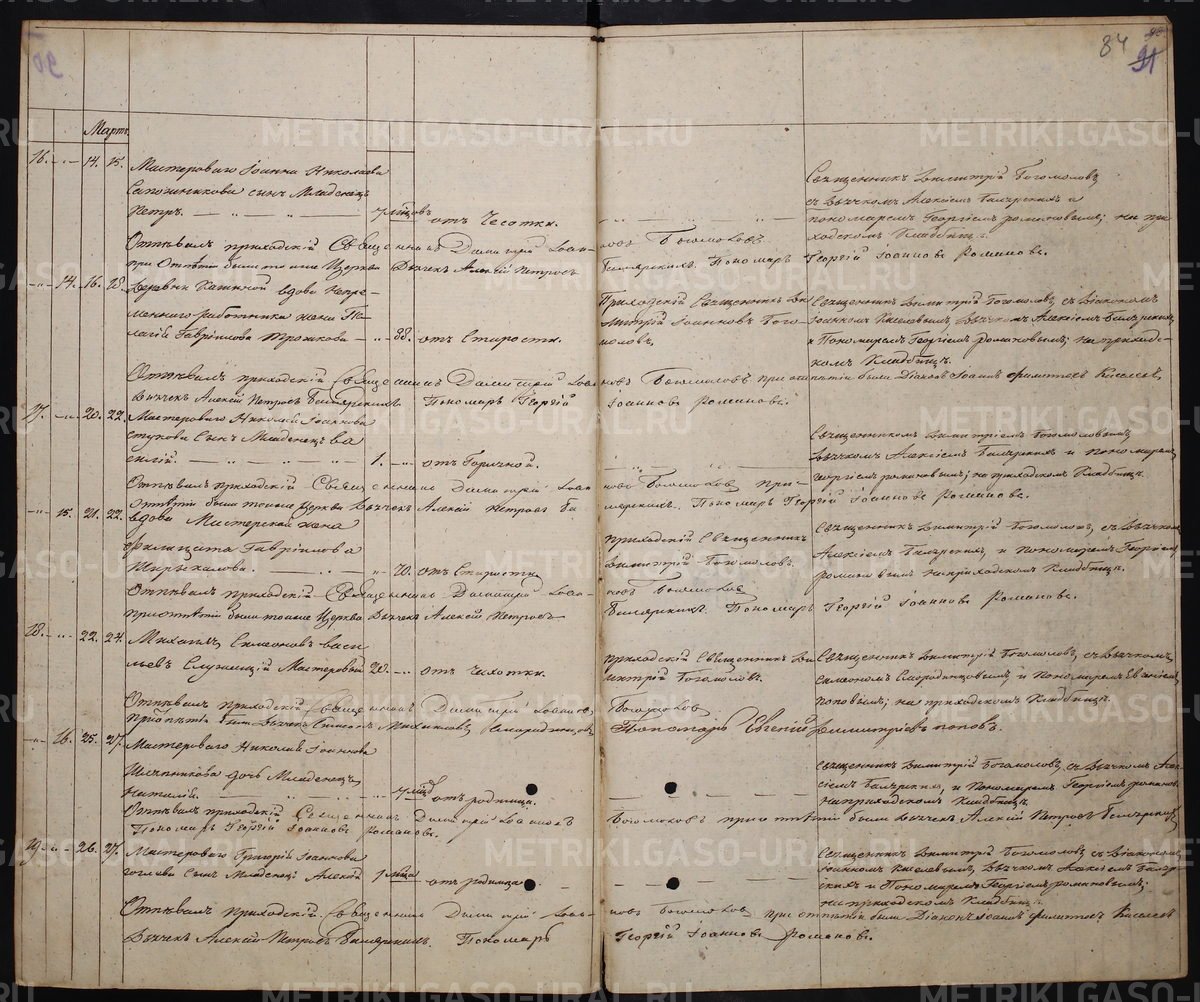 84
91
Мартъ.
16. - „ - 14. 15. Мастероваго Іоанна Николаева
Сапожникова сынъ Младенецъ
Петръ. 7 мцовъ отъ Чесотки.
Священникъ Димитрій Богомоловъ,
съ Дьячкомъ Алексіемъ Билярскимъ и
пономаремъ Георгіемъ Романовымъ; на при-
ходскомъ Кладбищѣ.
Отпѣвалъ приходскій Священникъ Димитрій Іоан-
новъ Богомоловъ
при Отпѣтіи были тоже Церкви Дьячекъ Алексій Петровъ
Билярскихъ. Пономарь Георгій Іоанновъ Романовъ.
- „ - 14. 16. 18. Деревни вдова Непре-
меннаго работника жена Пе-
лагія Гавріилова Трошкова - „ - 88. отъ Старости.
Приходскій Священникъ Ди-
митрій Іоанновъ Бого-
моловъ,
Священникъ Димитрій Богомоловъ, съ Діакономъ
Іоанномъ Киселевымъ, Дьячкомъ Алексіемъ Билярскимъ,
и Пономаремъ Георгіемъ Романовымъ; на приход-
скомъ Кладбищѣ.
Отпѣвалъ приходскій Священникъ Димитрій Іоан-
новъ Богомоловъ при отпѣтіи были Діаконъ Іоаннъ Филитовъ Киселевъ,
Дьячекъ Алексій Петровъ Билярскихъ Пономарь Георгій
Іоанновъ Романовъ
17. - „ - 20. 22. Мастероваго Николая Іоаннова
стукова Сынъ Младенецъ Ва
силій. 1. - „ - отъ Горячки.
Священникомъ Димитріемъ Богомоловымъ,
Дьячкомъ Алексіемъ Билярскихъ и пономаремъ
Георгіемъ романовымъ; на приходскомъ Кладбищѣ.
Отпѣвалъ приходскій Священникъ Димитрій Іоан
новъ Богомоловъ при-
отпѣтіи были тоже Церкви Дьячекъ Алексій Петровъ Би
лярскихъ. Пономарь Георгій Іоанновъ Романовъ.
- „ - 15. 21. 22. вдова Мастерская жена
Фелицата Гавріилова
- „ - 70. отъ Старости
приходскій Священникъ
Димитрій Богомоловъ.
Священникъ Димитрій Богомоловъ, съ Дьячкомъ
Алексіемъ Билярскихъ, и пономаремъ Георгіемъ
романовымъ на приходскомъ Кладбищѣ.
Отпѣвалъ приходскій Священникъ Димитрій Іоан-
новъ Богомоловъ
при отпѣтіи были тоже Церкви Дьячекъ Алексій Петровъ
Билярскихъ. Пономарь Георгій Іоанновъ Романовъ.
18. - „ - 22. 24. Михаилъ Симеоновъ васи
льевъ Служащій Мастеровый 20. - „ - отъ чахотки.
приходскій Священникъ Ди
митрій Богомоловъ.
Священникъ Димитрій Богомоловъ, съ Дьячкомъ
симеономъ Смородинцовымъ, и пономаремъ Евгеніемъ
поповымъ; на приходскомъ Кладбищѣ.
Отпѣвалъ приходскій Священникъ Димитрій Іоанновъ
Богомоловъ
при отпѣтіи были Дьячекъ Симеонъ Смородинцовъ
Пономарь Евгеній Димитріевъ поповъ.
- „ - 16. 25. 27. Мастероваго Николая Іоаннова
Шляпникова дочь Младенецъ
Наталія. 7 мцъ отъ родимца.
Священникъ Димитрій Богомоловъ, съ Дьячкомъ Алек-
сіемъ Билярскихъ, и пономаремъ Георгіемъ романов.
на приходскомъ Кладбищѣ.
Отпѣвалъ приходскій Священникъ Димитрій Іоанновъ
Богомоловъ при отпѣтіи были Дьячекъ Алексій Петровъ Билярскихъ
Пономарь Георгій Іоанновъ Романовъ.
19. - „ - 26. 27. Мастероваго Григорія Іоаннова
гоглева Сынъ Младенецъ Алексій 1 мца отъ родимца
Священникъ Димитрій Богомоловъ, съ Діакономъ
Іоанномъ Киселевымъ, Дьячкомъ Алексіемъ Биляр-
скихъ и Пономаремъ Георгіемъ романовымъ;
на приходскомъ Кладбищѣ.
Отпѣвалъ приходскій Священникъ Димитрій Іоан-
новъ Богомоловъ при отпѣтіи были Діаконъ Іоаннъ Филитовъ Киселевъ
Дьячекъ Алексій Петровъ Билярскихъ. Пономарь
Георгій Іоанновъ Романовъ.
METRIKI.GASO-URAL.RU